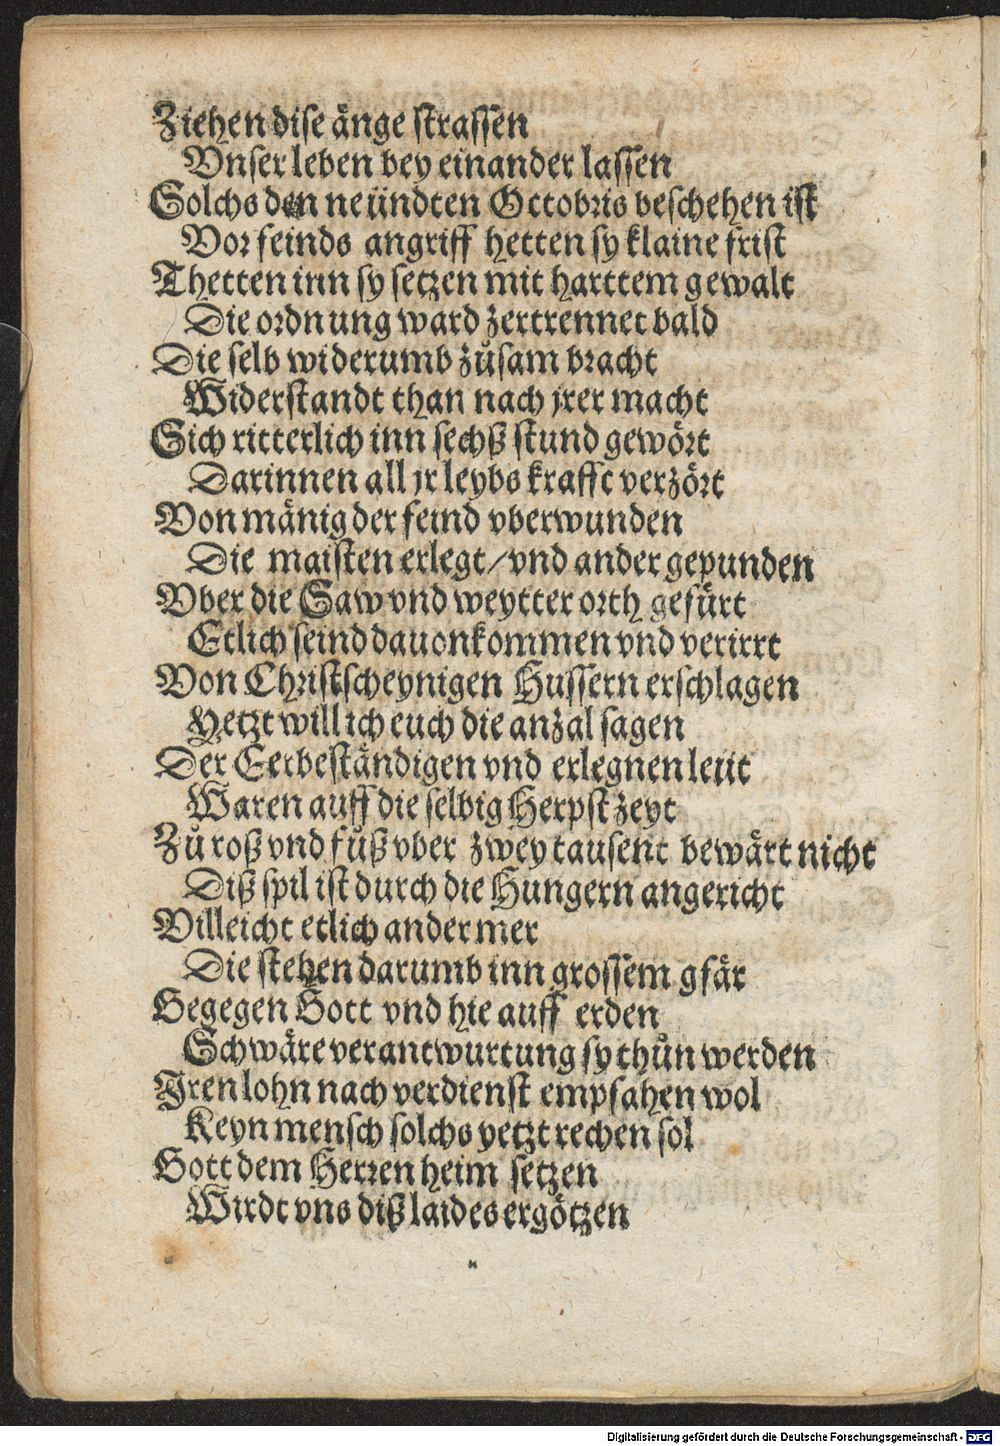 Ziehen dise änge strassen
Vnser leben bey einander lassen
Solchs den neündten Octobris beschehen ist
Vor feinds angriff hetten sy klaine frist
Thetten inn sy setzen mit harttem gewalt
Die ordnung ward zertrennet bald
Die selb widerumb zůsam bracht
Widerstandt than nach jrer macht
Sich ritterlich inn sechß stund gewört
Darinnen all jr leybs krafft verzört
Von mänig der feind vberwunden
Die maisten erlegt/vnd ander gepunden
Vber die Saw vnd weytter orth gefürt
Etlich seind dauonkommen vnd verirrt
Von Christscheynigen Hussern erschlagen
Yetzt will ich euch die anzal sagen
Der Eerbeständigen vnd erlegnen leüt
Waren auff die selbig Herpst zeyt
Zů roß vnd fůß vber zwey tausent bewärt nicht
Diß spil ist durch die Hungern angericht
Villeicht etlich ander mer
Die stehen darumb inn grossem gfär
Gegegen Gott vnd hie auff erden
Schwäre verantwurtung sy thůn werden
Jren lohn nach verdienst empfahen wol
Keyn mensch solchs yetzt rechen sol
Gott dem Herren heim setzen
Wirdt vns diß laides ergötzen
Digitalisierung gefördert durch die Deutsche Forschungsgemeinschaft - DFG